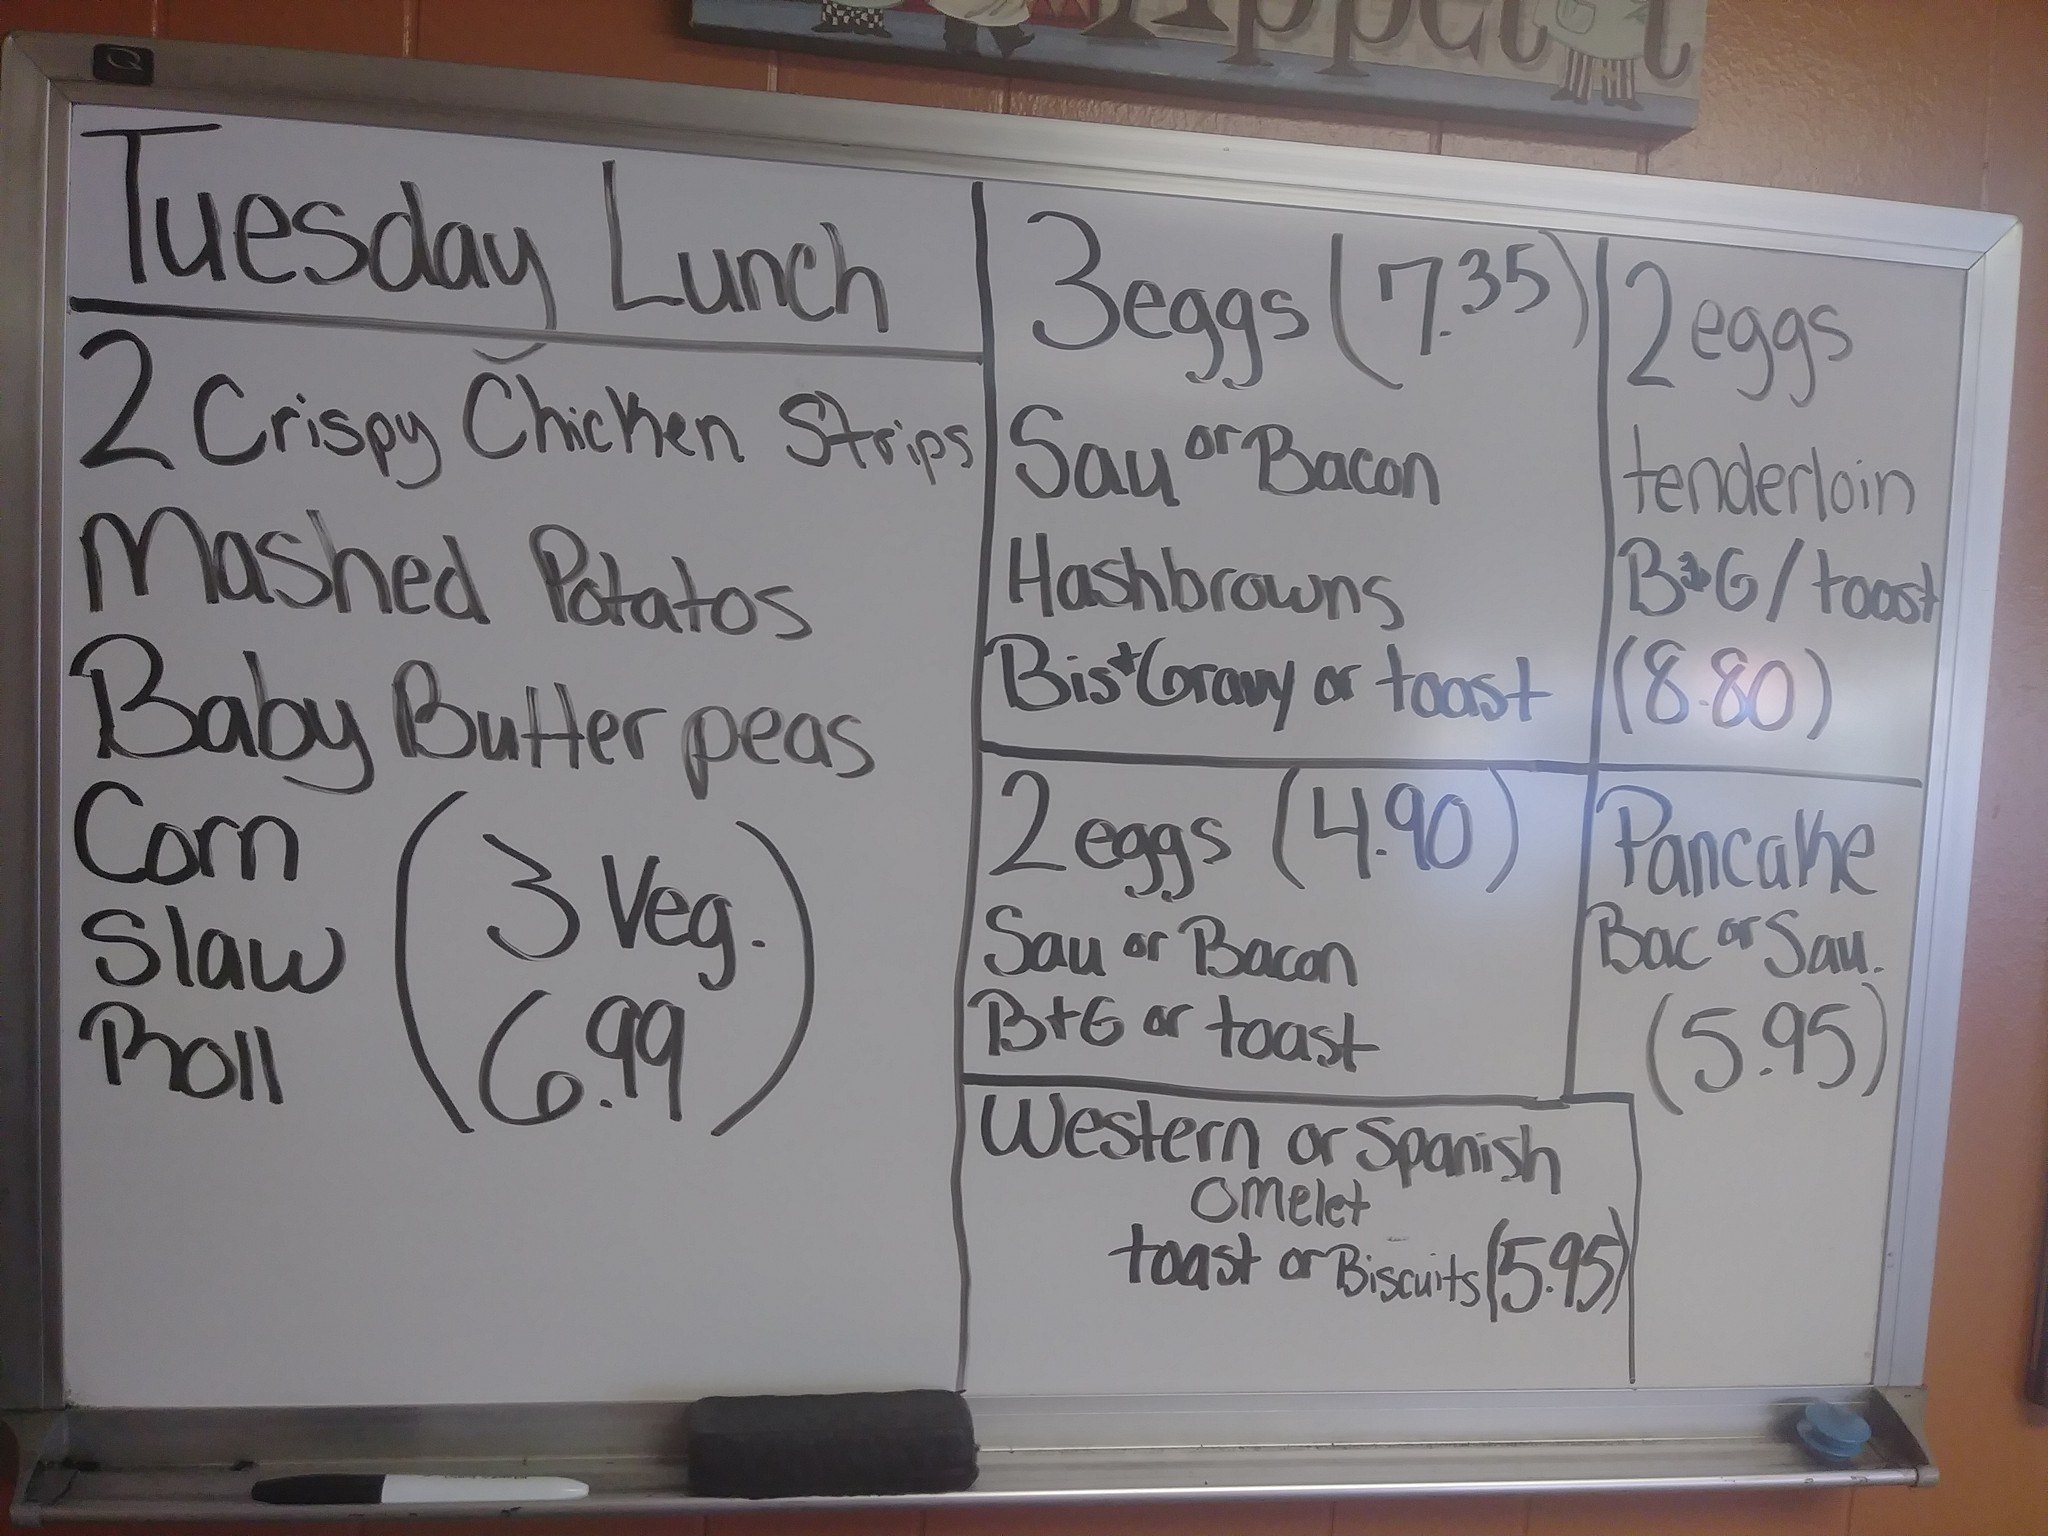 Appetit
Tuesday Lunch
2 Crispy Chicken Strips
Mashed Potatos
Baby Butter peas
Corn
Slaw
Roll
(3 Veg.
6.99)
3 eggs (7.35)
Sau or Bacon
Hashbrowns
Bis + Gravy or toast
2 eggs
tenderloin
B+G / toast
(8.80)
2 eggs (4.90)
Sau or Bacon
B+G or toast
Pancake
Bac or Sau.
(5.95)
Western or Spanish
omelet
toast or Biscuits (5.95)